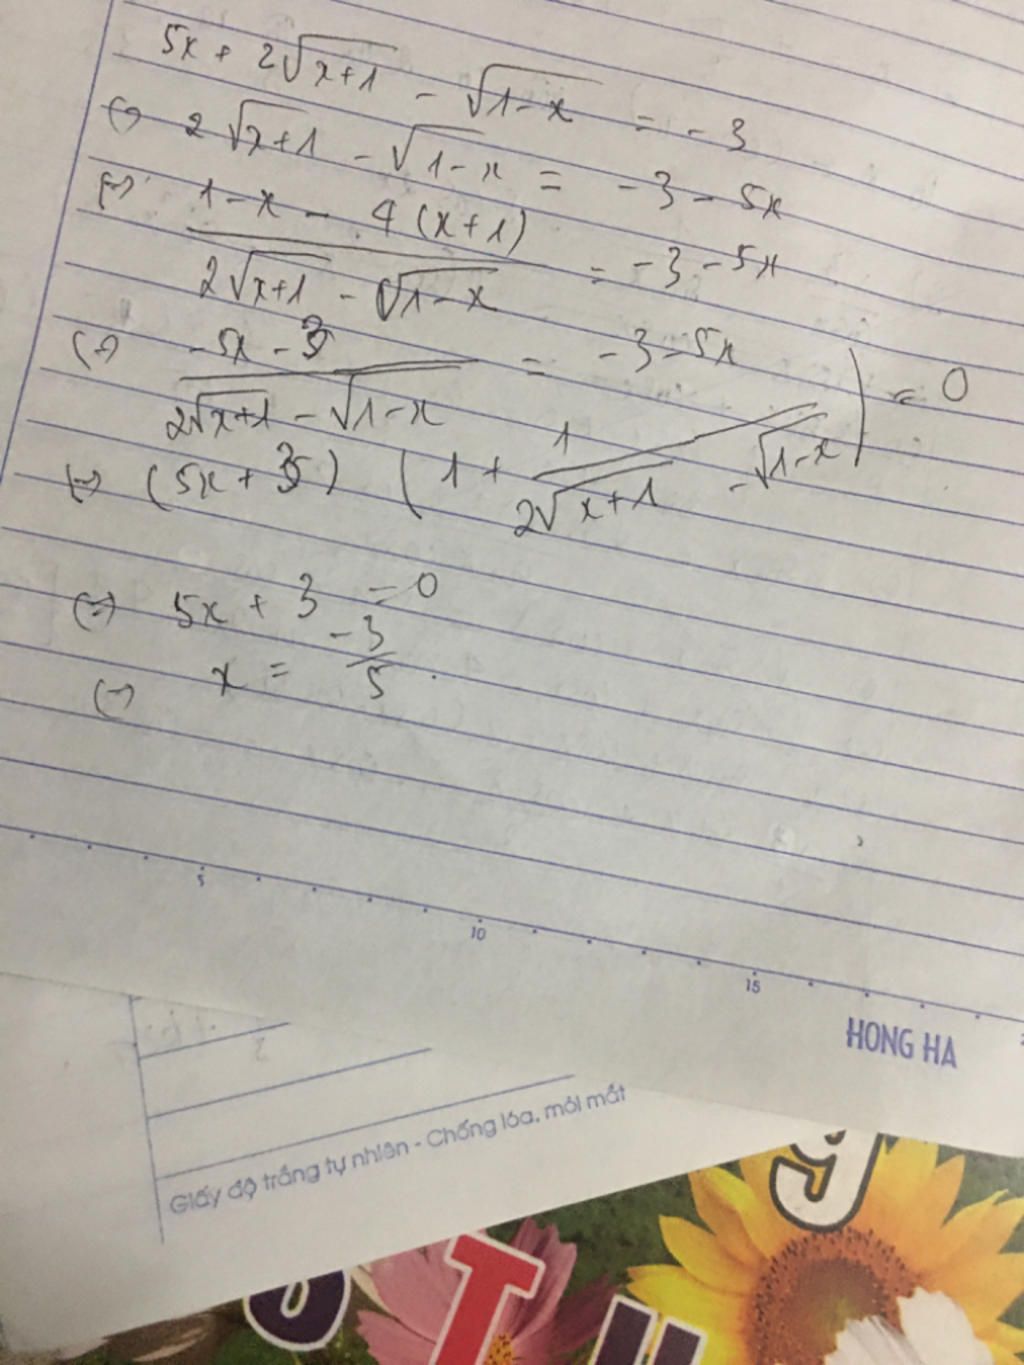 5x + 2√(x+1) - √(1-x) = -3
(=) 2√(x+1) - √(1-x) = -3 - 5x
(=) (1-x - 4(x+1))/(2√(x+1) - √(1-x)) = -3 - 5x
(=) (-5x - 3)/(2√(x+1) - √(1-x)) = -3 - 5x
(=) (5x + 3) (1 + 1/(2√(x+1) - √(1-x))) = 0
(=) 5x + 3 = 0
(=) x = -3/5.
5 10 15
HONG HA
3
Giấy độ trắng tự nhiên - Chống lóa, mỏi mắt